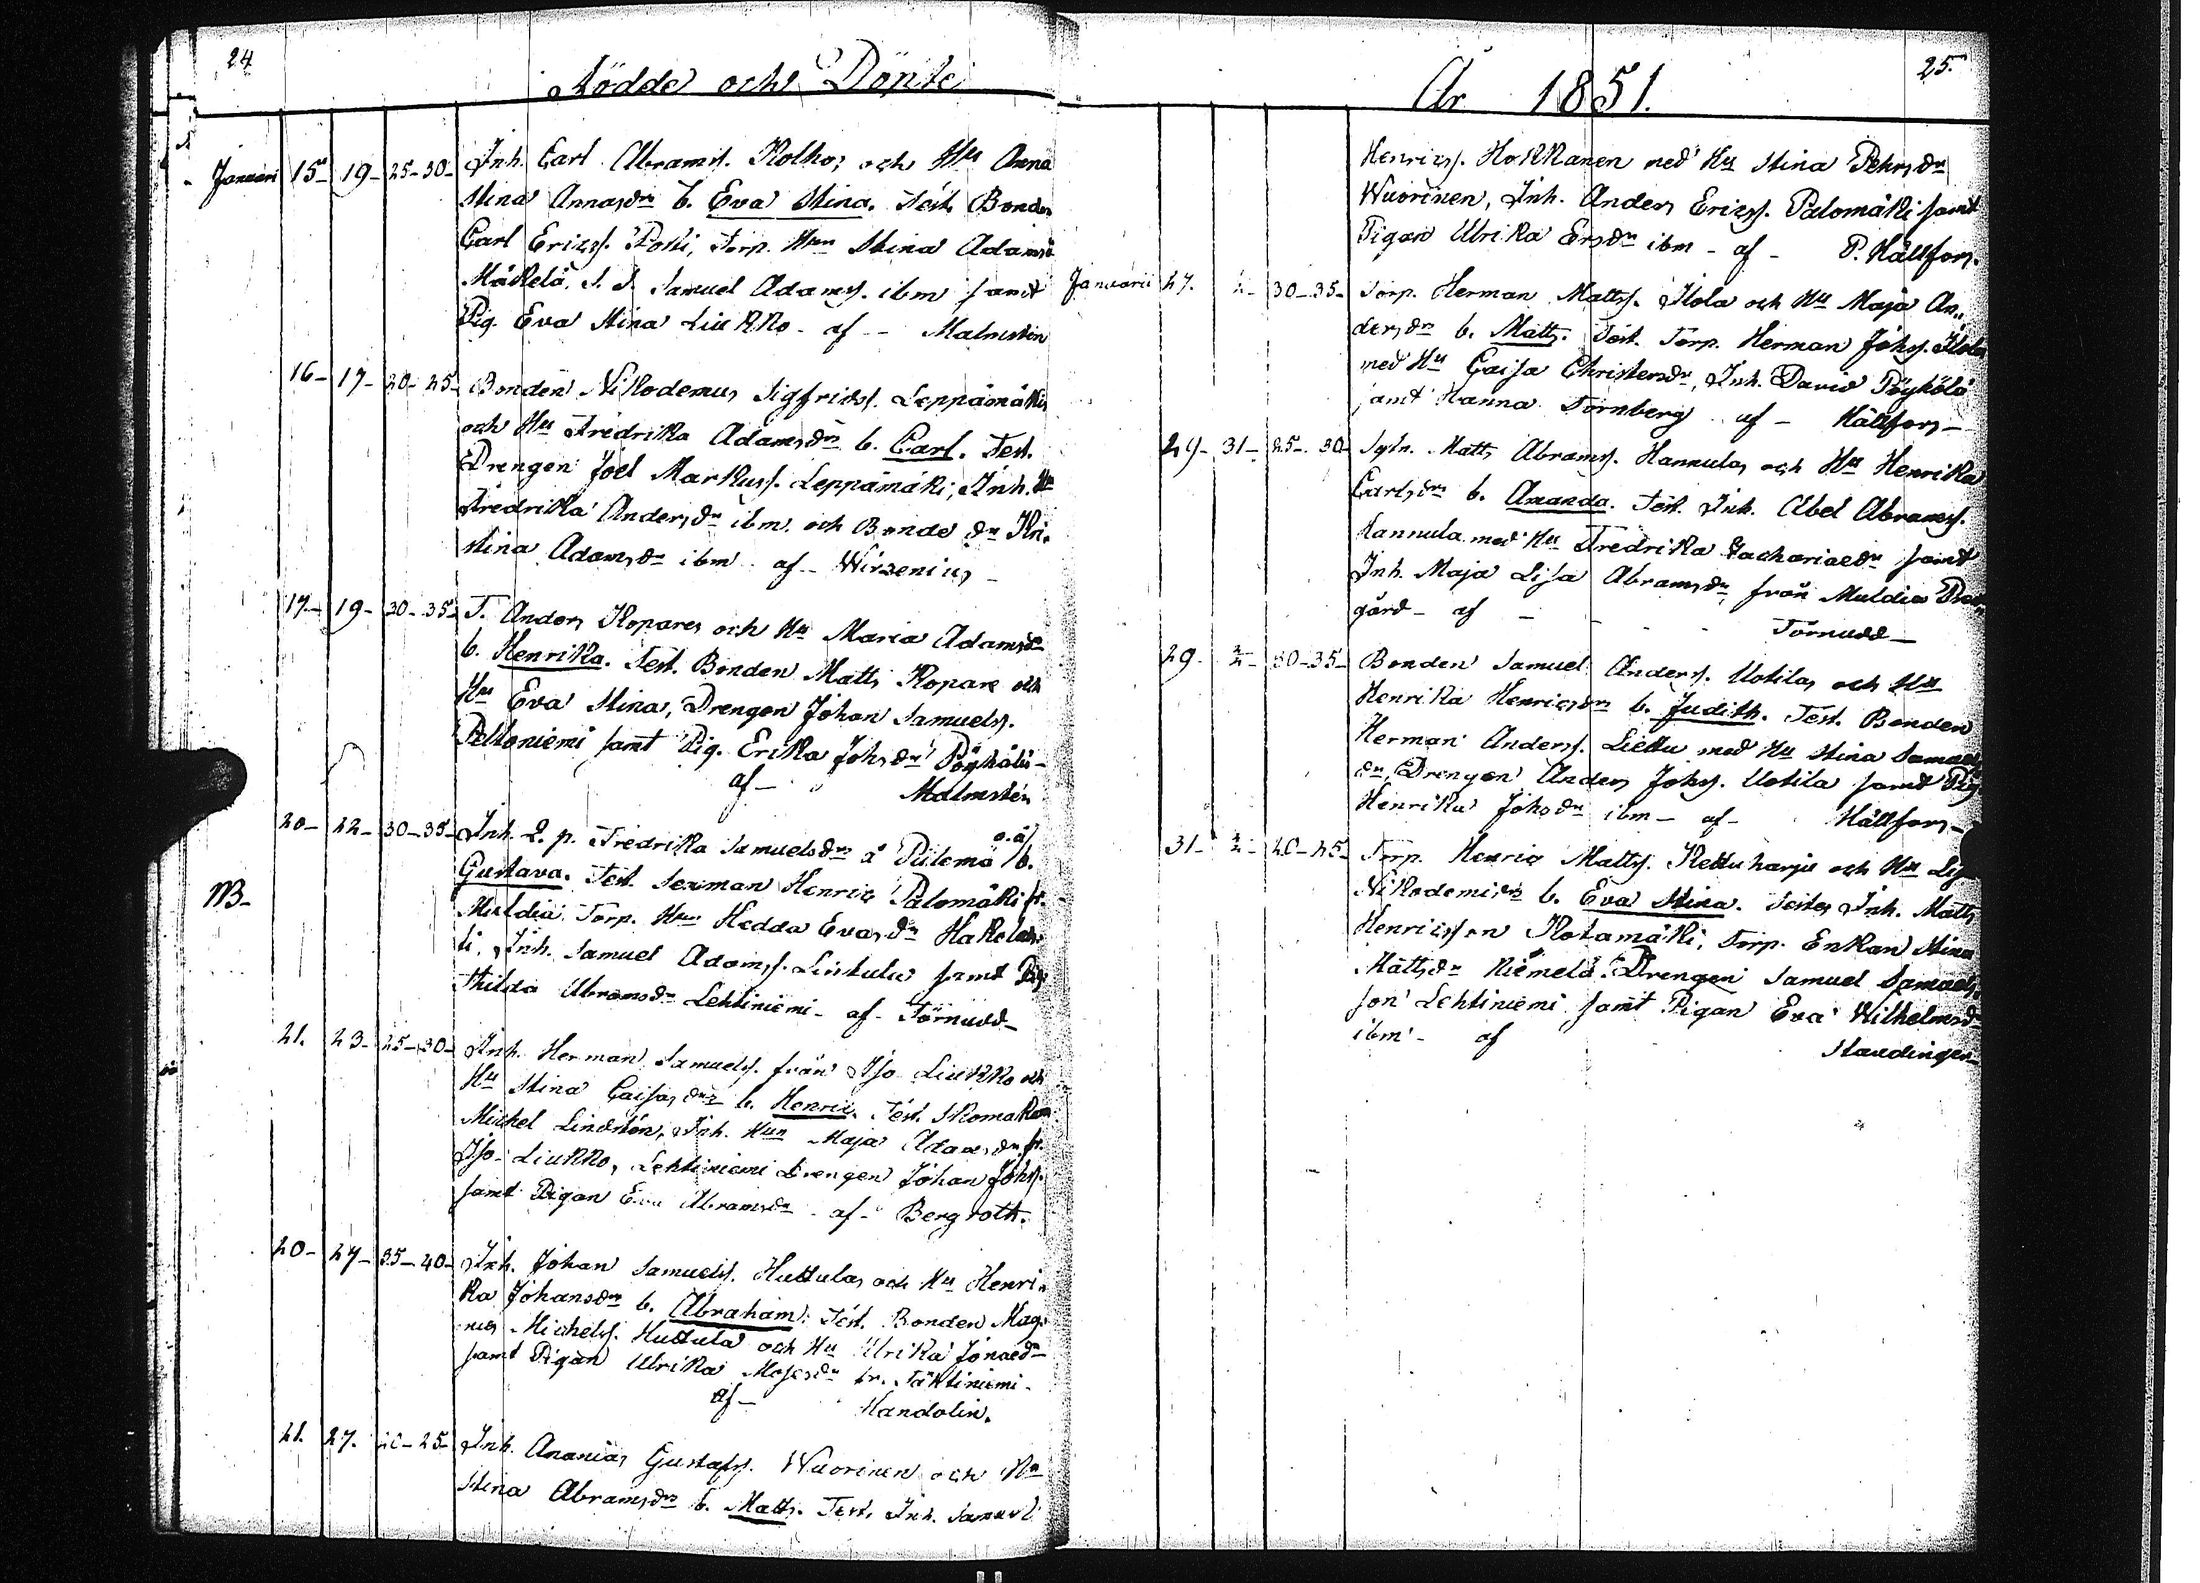 24
Födde och Döpte
Januari 15- 19- 25-30- Inh. Carl Abramss. Kolhos och Hu Anna
Stina Annasdr b. Eva Stina. Test. Bonden
Carl Ericss. Poski, Torp. Hun Stina Adamsd
Mäkelä, S. S. Samuel Adamss. ibm samt
Pig. Eva Stina Liukko - af - Malmstén
16- 17- 20-25- Bonden Nikodemus Sigfridss. Leppämäkis
och Hu Fredrika Adamsdr b. Carl. Test.
Drengen Joel Markuss. Leppämäki, Inh. Hu
Fredrika Andersdr ibm och Bonde dr Kri-
stina Adamsdr ibm - af - Wirzenius -
17- 19- 30-35- T. Anders Kopares och Hu Maria Adamsdr
b. Henrika. Test. Bonden Matts Kopare och
Hu Eva Stina, Drengen Johan Samuelss.
Peltoniemi samt Pig. Erika Johsdr Pöyhölä -
af - Malmstén
20- 22- 30-35- Inh. Q. p. Fredrika Samuelsdrs å Palomä o. ä b.
NB- Gustava. Test. Sexman Henric Palomäki fr.
Muldia, Torp. Hun Hedda Evasdr Hakolah-
ti, Inh. Samuel Adamss. Lintulu samt Pig
Thilda Abramsdr Lehtiniemi - af - Törnudd -
21. 23- 25-30- Inh. Herman Samuelss. från Iso Liukko och
Hu Stina Caisasdrs b. Henric. Test. Skomakare
Michel Lindstén, Inh. Hun Maja Adamsdr fr.
Iso-Liukko, Lehtiniemi Drengen Johan Johss.
samt Pigan Eva Abramsdr - af - Bergroth.
20- 27- 35-40- Inh. Johan Samuelss. Huttulas och Hu Henri-
ka Johansdr b. Abraham. Test. Bonden Mag-
nus Michelss. Huttula och Hu Ulrika Jonaedr
samt Pigan Ulrika Mosesdr fr. Täktiniemi -
af - Handolin.
21. 27. 20-25- Inh. Ananias Gustafss. Wuorinen och Hu
Stina Abramsdrs b. Matts. Test. Inh. Samuel
25.
År 1851.
Henricss. Hokkanen med Hu Stina Pehrsdr
Wuorinen, Inh. Anders Ericss. Palomäki samt
Pigan Ulrika Ersdr ibm - af - P. Hällfors.
Januarii 27. 2/2- 30-35- Torp. Herman Mattss. Ilola och Hu Maja An-
dersdr b. Matts. Test. Torp. Herman Johss. Ilola
med Hu Caisa Christersdr, Inh. David Pöyhölä
samt Hanna Törnberg af - Hällfors -
29- 31- 25-30- Sytn. Matts Abramss. Hannulas och Hu Henrika
Carlsdrs b. Amanda. Test. Inh. Abel Abramss.
Hannula med Hu Fredrika Zachariaedr samt
Inh. Maja Lisa Abramsdr, från Muldia Prest-
gård - af - Törnudd -
29- 2/2- 30-35- Bonden Samuel Anderss. Uotilas och Hu
Henrika Henricsdrs b. Judith. Test. Bonden
Herman Anderss. Liettu med Hu Stina Samuels
dr, Drengen Anders Johss. Uotila samt Pig
Henrika Johsdr ibm - af - Hällfors -
31- 2/2- 40-45- Torp. Henric Mattss. Kettuharju och Hu Lis
Nikodemidr b. Eva Stina. Testes Inh. Matts
Henricsson Kotamäki, Torp. Enkan Stina
Mattsdr Niemelä. Drengen Samuel Samuels-
son Lehtiniemi samt Pigan Eva Wilhelmsd
ibm - af Standinger -